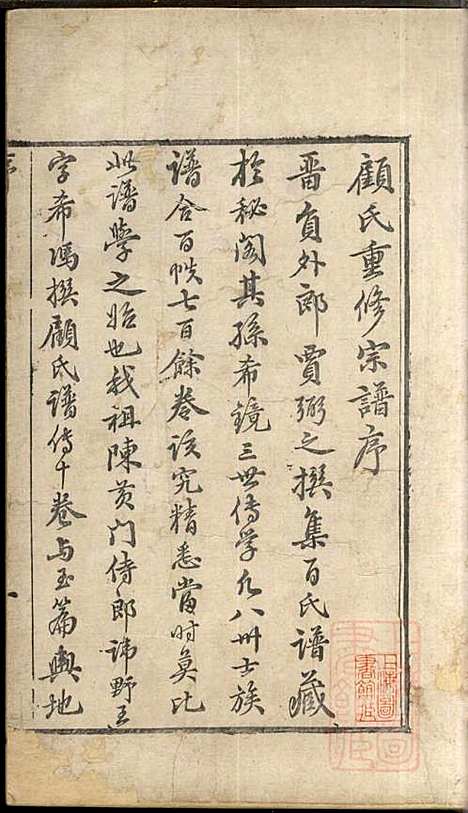 顧氏重修宗譜序
晋負外郎賈弼之撰集百氏譜藏
於秘閣其孫希鏡三世传学凡八州士族
譜合百帙七百餘卷该究精悉當时莫比
此谱學之始也我祖陳黄门侍郎諱野王
字希馮撰顧氏譜传十卷与玉篇輿地
序